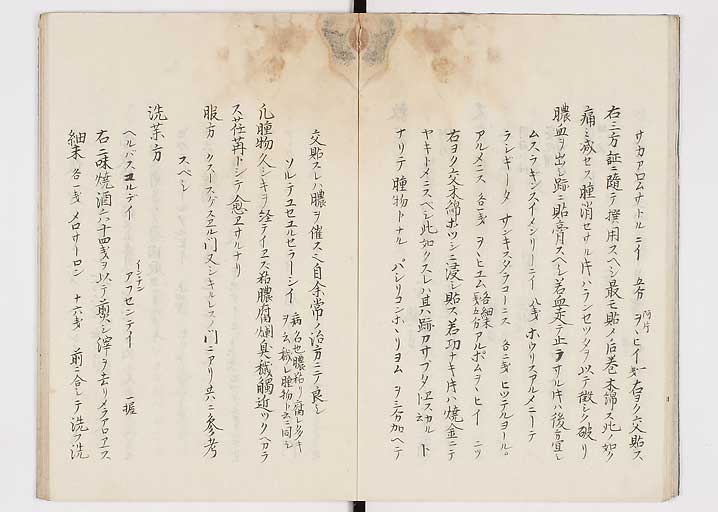 サカアロムサトルニイ 五分 ヲヽヒイ 右ヨク交貼ス
阿片
右三方証ニ隨テ撰用スヘシ最モ貼メ后巻木綿ス此ノ如ク
痛ミ減セス腫消セサル片ハランセツタヲ以テ微シク破リ
膿血ヲ出シ跡ニ貼膏スヘシ若血走テ止ラサル片ハ後方宜シ
ムスラキンスイメンリーニイ 八戔 ホウリスアルメニーテ
ラシギータ サンキスタラコーニス 各二戔 ヒツテルヨール。
アルメニス 各二戔 ヲヽヒユム 各細末 アルボムヲヽヒイ 二ツ
右ヨク交木綿ホツシニ浸シ貼ス若功ナキ片ハ焼金ニテ
ヤキトメニスベシ此如クスレハ其ハ跡カサブタ スカルト
ナリテ腫物トナル バシリコンホヽリヨム ヲ三分加ヘテ
交貼スレハ膿ヲ催スヘシ自余常ノ治方ニテ良シ
ソルテユセエルセラーシイ 病名也膿粘リ腐レ多キ
ヲ云穢レ腫物ト云ニ同シ
凡腫物久シキヲ経テイエズ粘膿腐爛臭穢觸近ツクヘカラ
ス荏苒トシテ愈エサルナリ
服方 クスースグスエル門又シキルレスノ門ニアリ共ニ参考
スベシ
洗薬方
ヘルバスコルデイ アフセンテイ 一握
イーンテン
右二味焼酒六十四戔ヲ以テ煎シ滓ヲ去リメラアロエス
細末 各一戔 メロサーロン 十六戔 前ニ合シテ洗フ洗